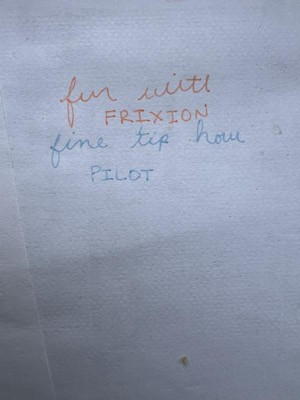 fun with
FRIXION
fine tip how
PILOT